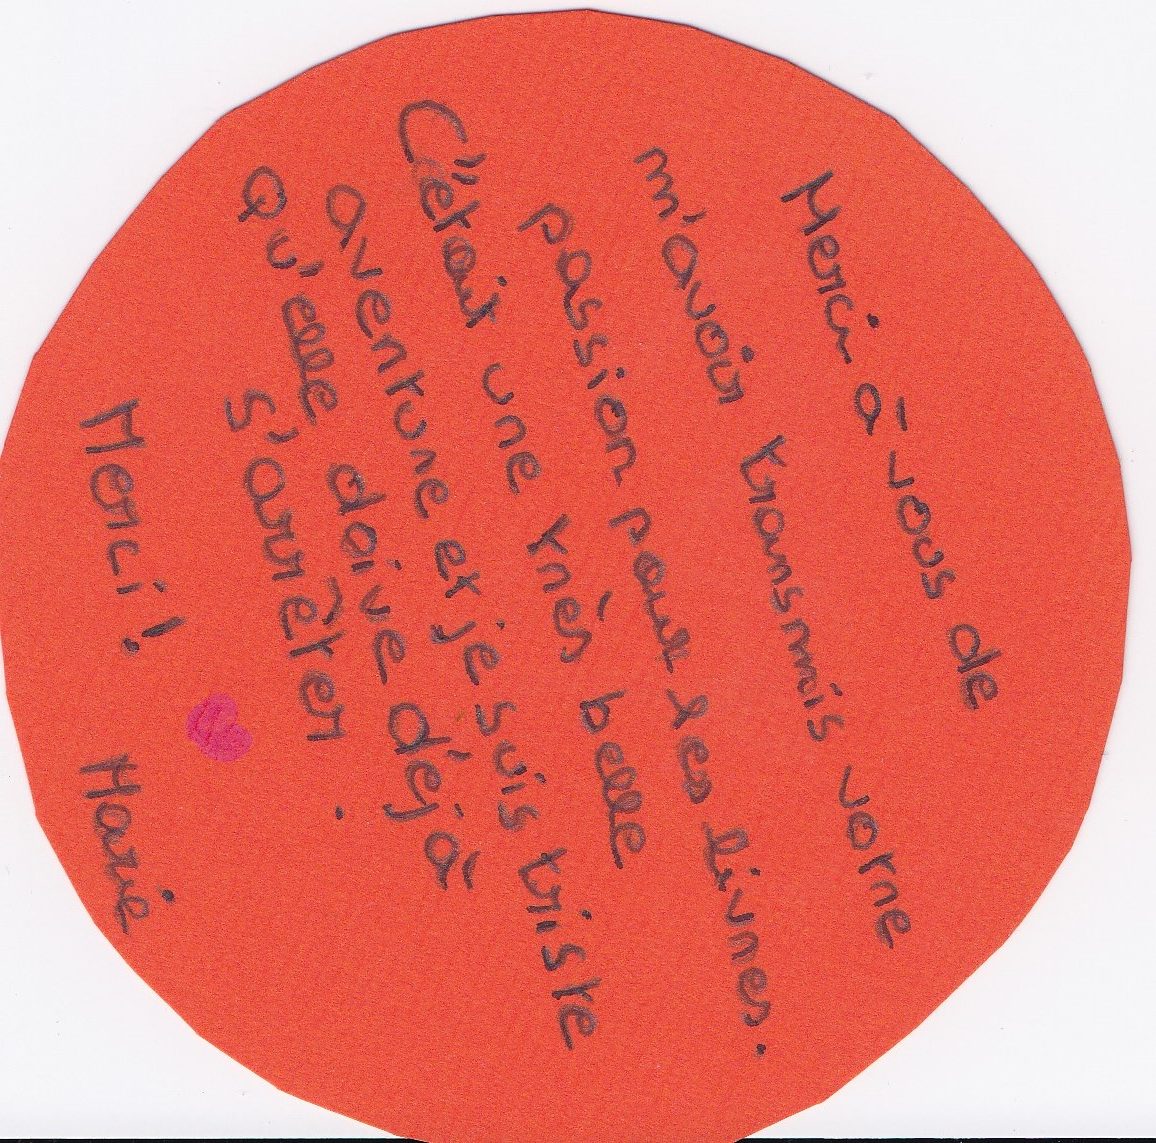 Merci à vous de
m'avoir transmis votre
passion pour les livres.
C'était une très belle
aventure et je suis triste
Qu'elle doive déjà
s'arrêter.
Merci! Marie